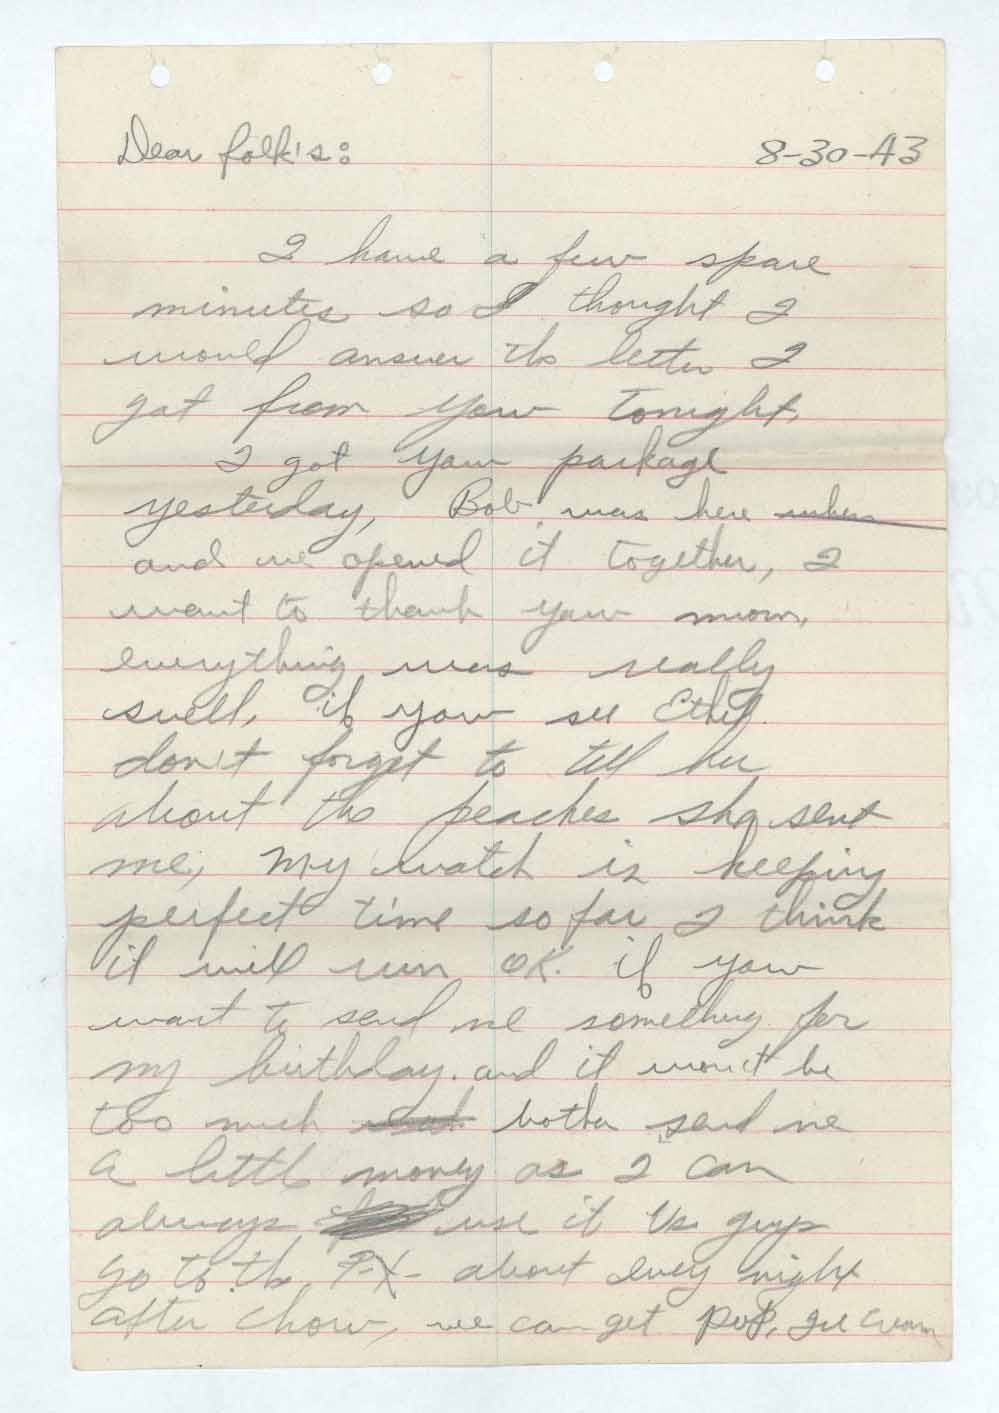 Dear folk's: 8-30-43
I have a few spare
minutes so I thought I
would answer the letter I
got from you tonight,
I got your package
yesterday, Bob was here when
and we opened it together, I
want to thank you mom,
everything was really
swell, if you see Ethel
don't forget to tell her
about the peaches she sent
me, My watch is keeping
perfect time so far I think
it will run OK. if you
want to send me something for
my birthday. and it won't be
too much bother send me
a little money as I can
always use it Us guys
go to the P-X- about every night
after chow, we can get pop, Ice cream